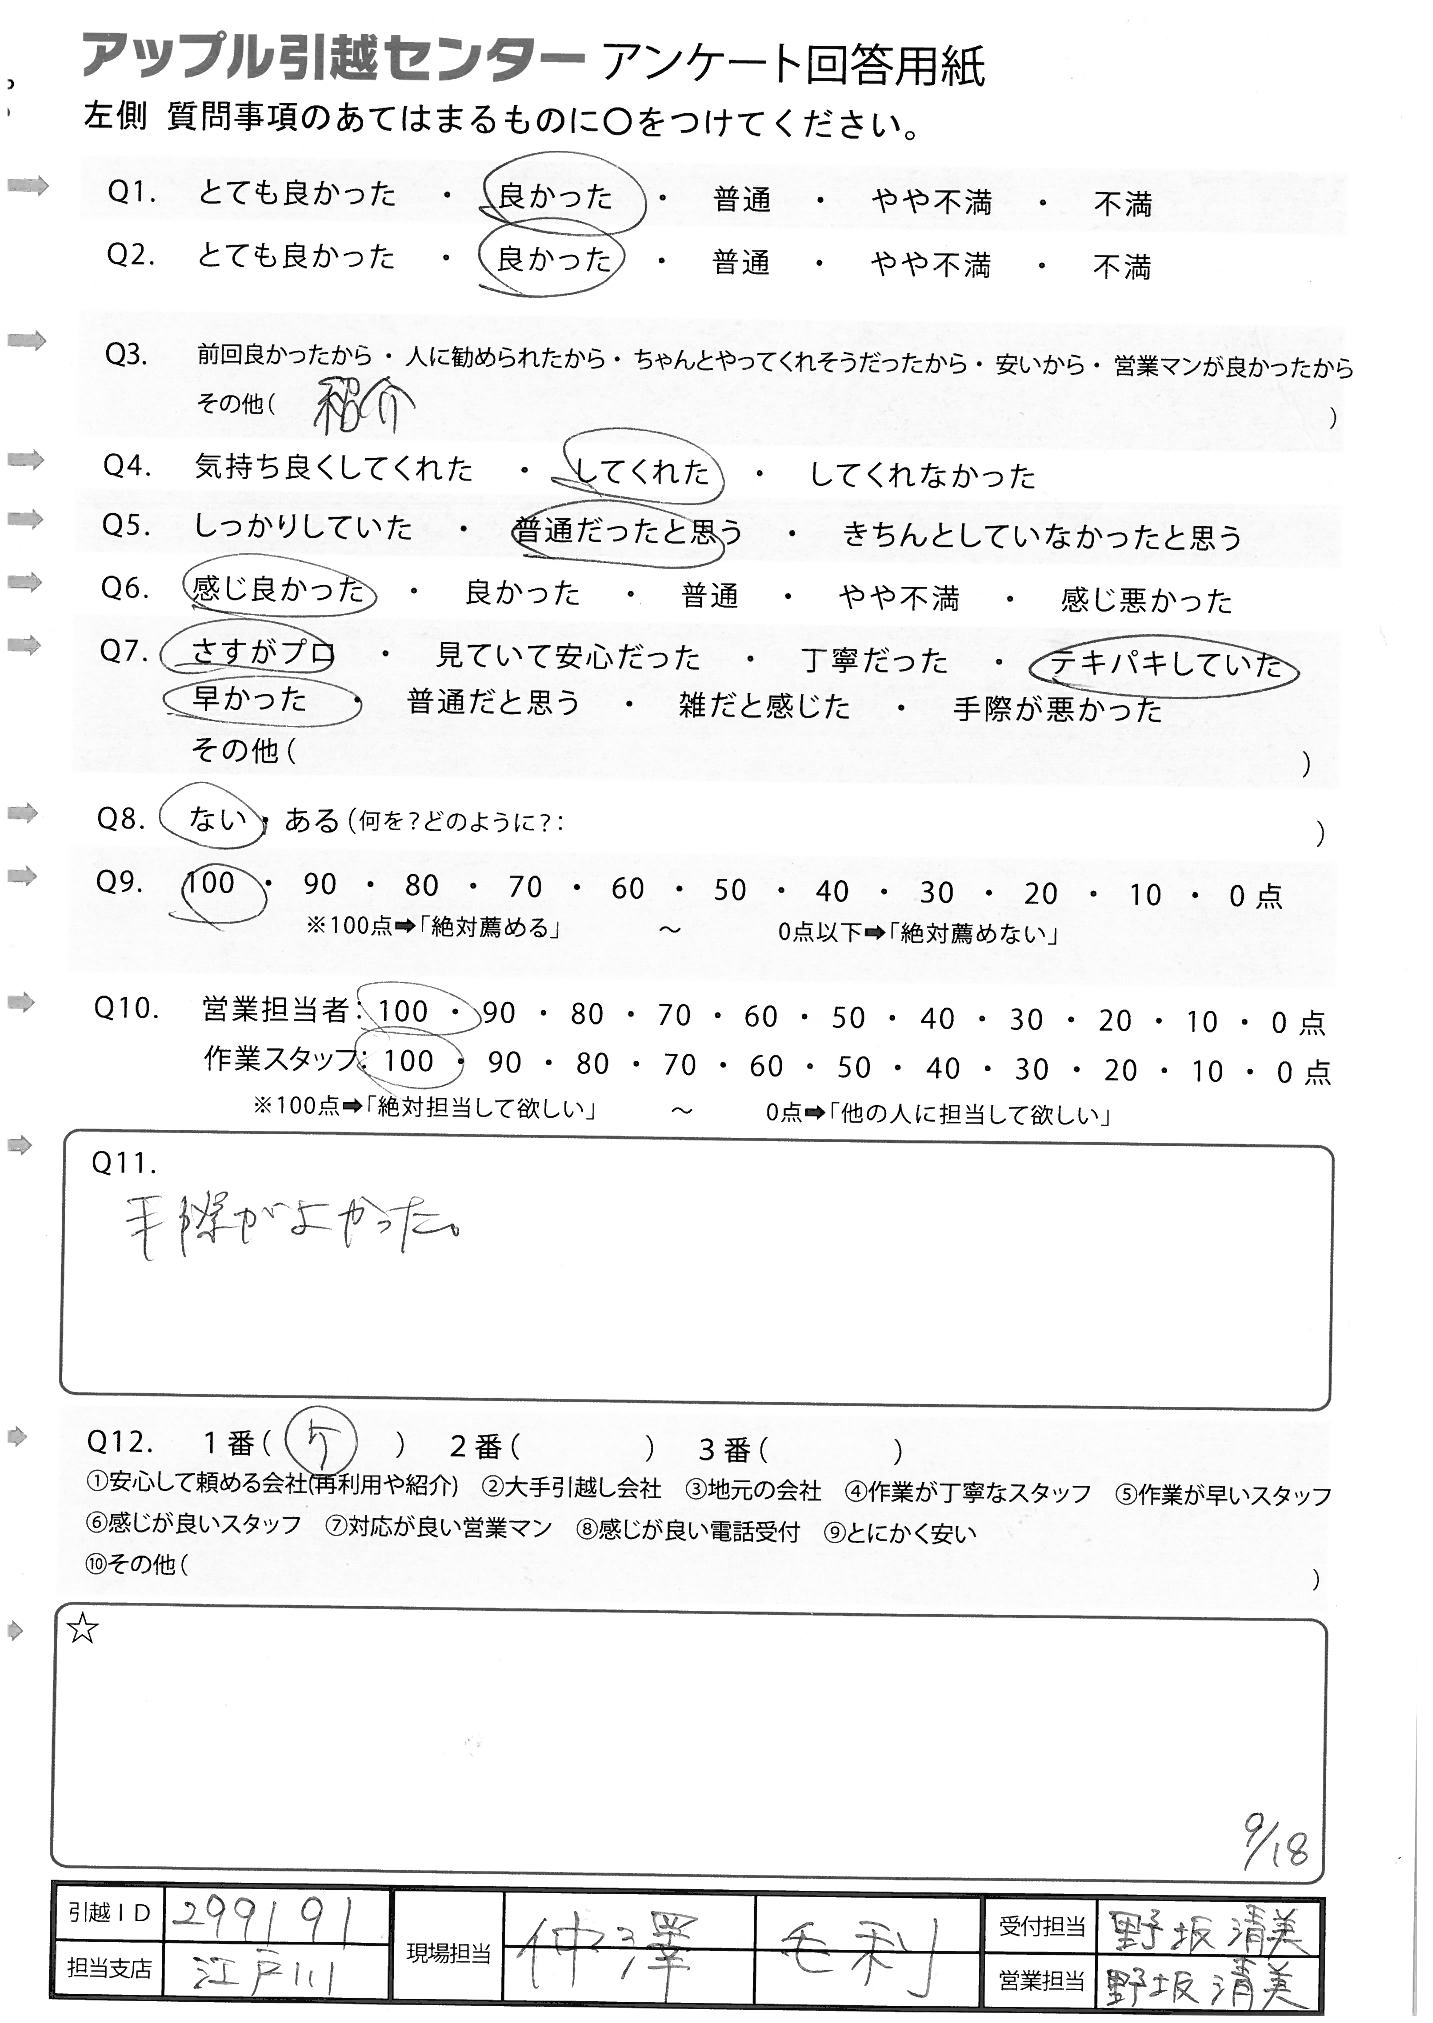 アップル引越センター アンケート回答用紙
左側 質問事項のあてはまるものに〇をつけてください。
Q1. とても良かった ・ 良かった ・ 普通 ・ やや不満 ・ 不満
Q2. とても良かった ・ 良かった ・ 普通 ・ やや不満 ・ 不満
Q3. 前回良かったから・ 人に勧められたから・ ちゃんとやってくれそうだったから・ 安いから・ 営業マンが良かったから
その他( 紹介 )
Q4. 気持ち良くしてくれた ・ してくれた ・ してくれなかった
Q5. しっかりしていた ・ 普通だったと思う ・ きちんとしていなかったと思う
Q6. 感じ良かった ・ 良かった ・ 普通 ・ やや不満 ・ 感じ悪かった
Q7. さすがプロ ・ 見ていて安心だった ・ 丁寧だった ・ テキパキしていた
早かった ・ 普通だと思う ・ 雑だと感じた ・ 手際が悪かった
その他( )
Q8. ない ・ ある(何を?どのように?: )
Q9. 100 ・ 90 ・ 80 ・ 70 ・ 60 ・ 50 ・ 40 ・ 30 ・ 20 ・ 10 ・ 0 点
※100点➡「絶対薦める」 ～ 0点以下➡「絶対薦めない」
Q10. 営業担当者: 100 ・ 90 ・ 80 ・ 70 ・ 60 ・ 50 ・ 40 ・ 30 ・ 20 ・ 10 ・ 0 点
作業スタッフ: 100 ・ 90 ・ 80 ・ 70 ・ 60 ・ 50 ・ 40 ・ 30 ・ 20 ・ 10 ・ 0 点
※100点➡「絶対担当して欲しい」 ～ 0点➡「他の人に担当して欲しい」
Q11.
手際がよかった。
Q12. 1番( ) 2番( ) 3番( )
①安心して頼める会社(再利用や紹介) ②大手引越し会社 ③地元の会社 ④作業が丁寧なスタッフ ⑤作業が早いスタッフ
⑥感じが良いスタッフ ⑦対応が良い営業マン ⑧感じが良い電話受付 ⑨とにかく安い
⑩その他( )
☆
9/18
引越ID 299191 現場担当 仲澤 毛利 受付担当 野坂清美
担当支店 江戸川 営業担当 野坂清美